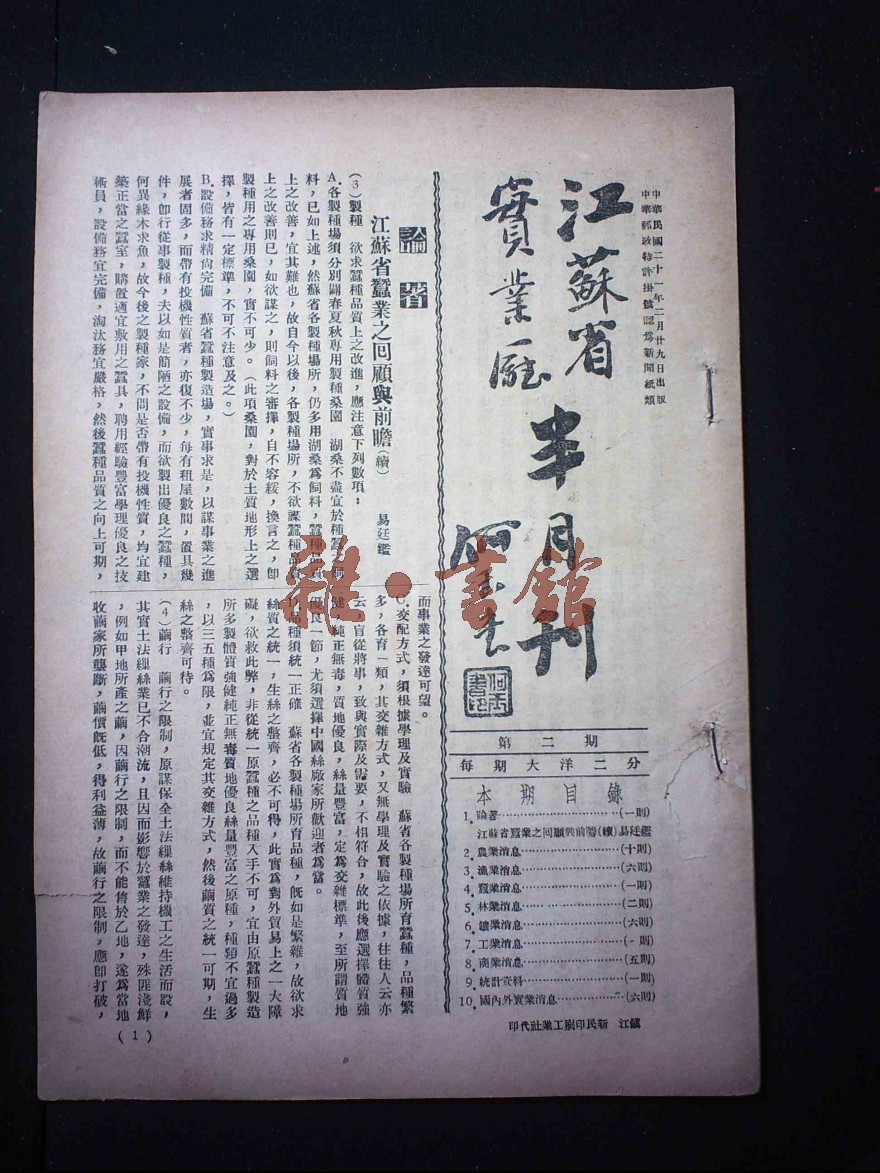 中華民國二十一年二月廿九日出版
中華郵政特許掛號認爲新聞紙類
江蘇省
實業廳
半月刊
何玉書
第二期
每期大洋二分
本期目錄
1. 論著(一則)
江蘇省蠶業之回顧與前瞻(續)易廷鑑
2. 農業消息(十則)
3. 漁業消息(六則)
4. 蠶業消息(一則)
5. 林業消息(二則)
6. 鑛業消息(六則)
7. 工業消息(一則)
8. 商業消息(五則)
9. 統計資料(一則)
10. 國內外實業消息(六則)
鎭江 新民印刷工業社代印
論著
江蘇省蠶業之回顧與前瞻(續)
易廷鑑
(3)製種 欲求蠶種品質上之改進,應注意下列數項:
A.各製種場須分別闢春夏秋專用製種桑園 湖桑不盡宜於種蠶之飼
料,已如上述,然蘇省各製種場所,仍多用湖桑爲飼料,蠶種品質
上之改善,宜其難也,故自今以後,各製種場所,不欲謀蠶種品質
上之改善則已,如欲謀之,則飼料之審擇,自不容緩,換言之,卽
製種用之專用桑園,實不可少。(此項桑園,對於土質地形上之選
擇,皆有一定標準,不可不注意及之。)
B.設備務求精尙完備 蘇省蠶種製造場,實事求是,以謀事業之進
展者固多,而帶有投機性質者,亦復不少,每有租屋數間,置具幾
件,卽行從事製種,夫以如是簡陋之設備,而欲製出優良之蠶種,
何異緣木求魚,故今後之製種家,不問是否帶有投機性質,均宜建
築正當之蠶室,購置適宜敷用之蠶具,聘用經驗豐富學理優良之技
術員,設備務宜完備,淘汰務宜嚴格,然後蠶種品質之向上可期,
而事業之發達可望。
C.交配方式,須根據學理及實驗 蘇省各製種場所育蠶種,品種繁
多,各育一類,其交雜方式,又無學理及實驗之依據,往往人云亦
云,盲從將事,致與實際及需要,不相符合,故此後應選擇體質強
健,純正無毒,質地優良,絲量豐富,定爲交雜標準,至所謂質地
優良一節,尤須選擇中國絲廠家所歡迎者爲當。
D.品種須統一正確 蘇省各製種場所育品種,旣如是繁雜,故欲求
絲質之統一,生絲之整齊,必不可得,此實爲對外貿易上之一大障
礙,欲救此弊,非從統一原蠶種之品種入手不可,宜由原蠶種製造
所多製體質強健純正無毒質地優良絲量豐富之原種,種類不宜過多
,以三五種爲限,並宜規定其交雜方式,然後繭質之統一可期,生
絲之整齊可待。
(4)繭行 繭行之限制,原謀保全土法繅絲維持機工之生活而設,
其實土法繅絲業已不合潮流,且因而影響於蠶業之發達,殊匪淺鮮
,例如甲地所產之繭,因繭行之限制,而不能售於乙地,遂爲當地
收繭家所壟斷,繭價旣低,得利益薄,故繭行之限制,應卽打破,
(1)
雜·書館